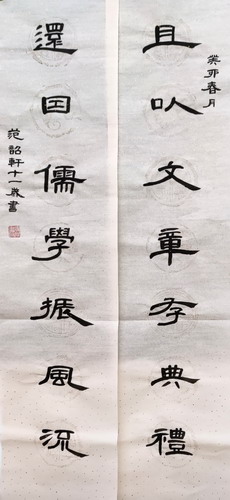 癸卯春月
且以文章存典禮
還因儒學振風流
范韶軒十一歲書